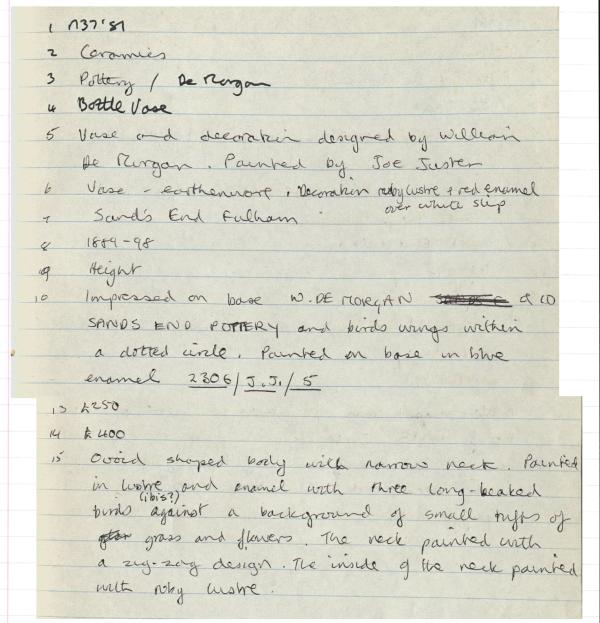 1 M37'81
2 Ceramics
3 Pottery / De Morgan
4 Bottle Vase
5 Vase and decoration designed by William
De Morgan. Painted by Joe Juster
6 Vase - earthenware, Decoration ruby lustre + red enamel
over white slip
7 Sand's End Fulham
8 1889-98
9 Height
10 Impressed on base W. DE MORGAN & CO
SANDS END POTTERY and birds wings within
a dotted circle. Painted on base in blue
enamel 2306/J.J./5
13 £250
14 £400
15 Ovoid shaped body with narrow neck. Painted
in lustre and enamel with three long-beaked
birds (ibis?) against a background of small tufts of
grass and flowers. The neck painted with
a zig-zag design. The inside of the neck painted
with ruby lustre.